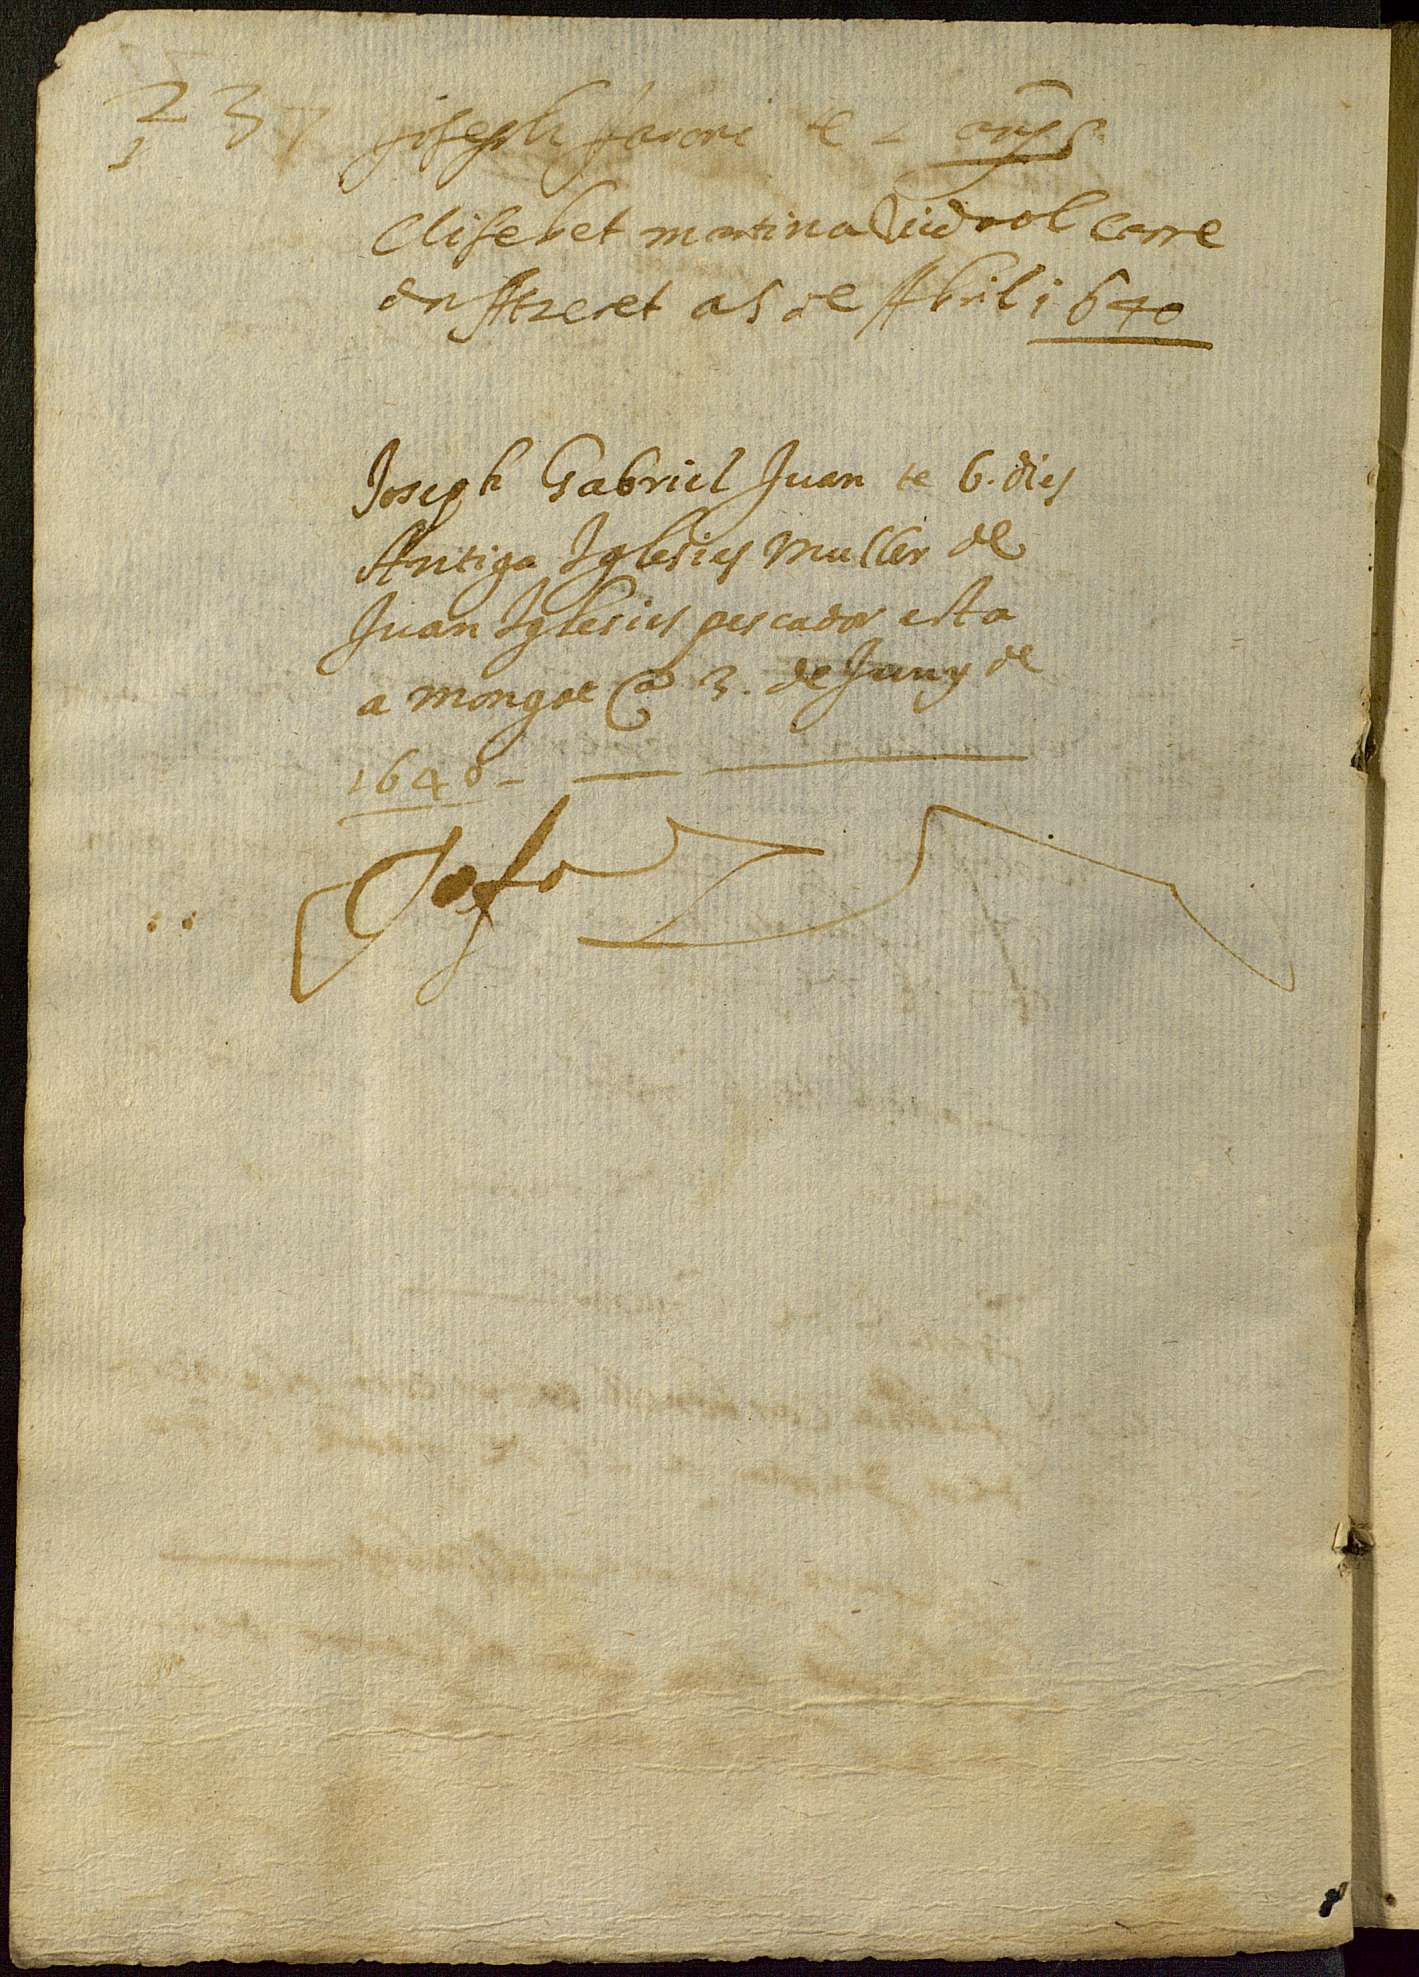 237 joseph te 2 anys
1
Elisebet martina Vidva al carre
den Atzeret a 5 de Abril 1640
Joseph Gabriel Juan te 6. dies
Antiga Iglesies Muller de
Juan Iglesies pescador esta
a Mongat a 3. de Juny de
1640